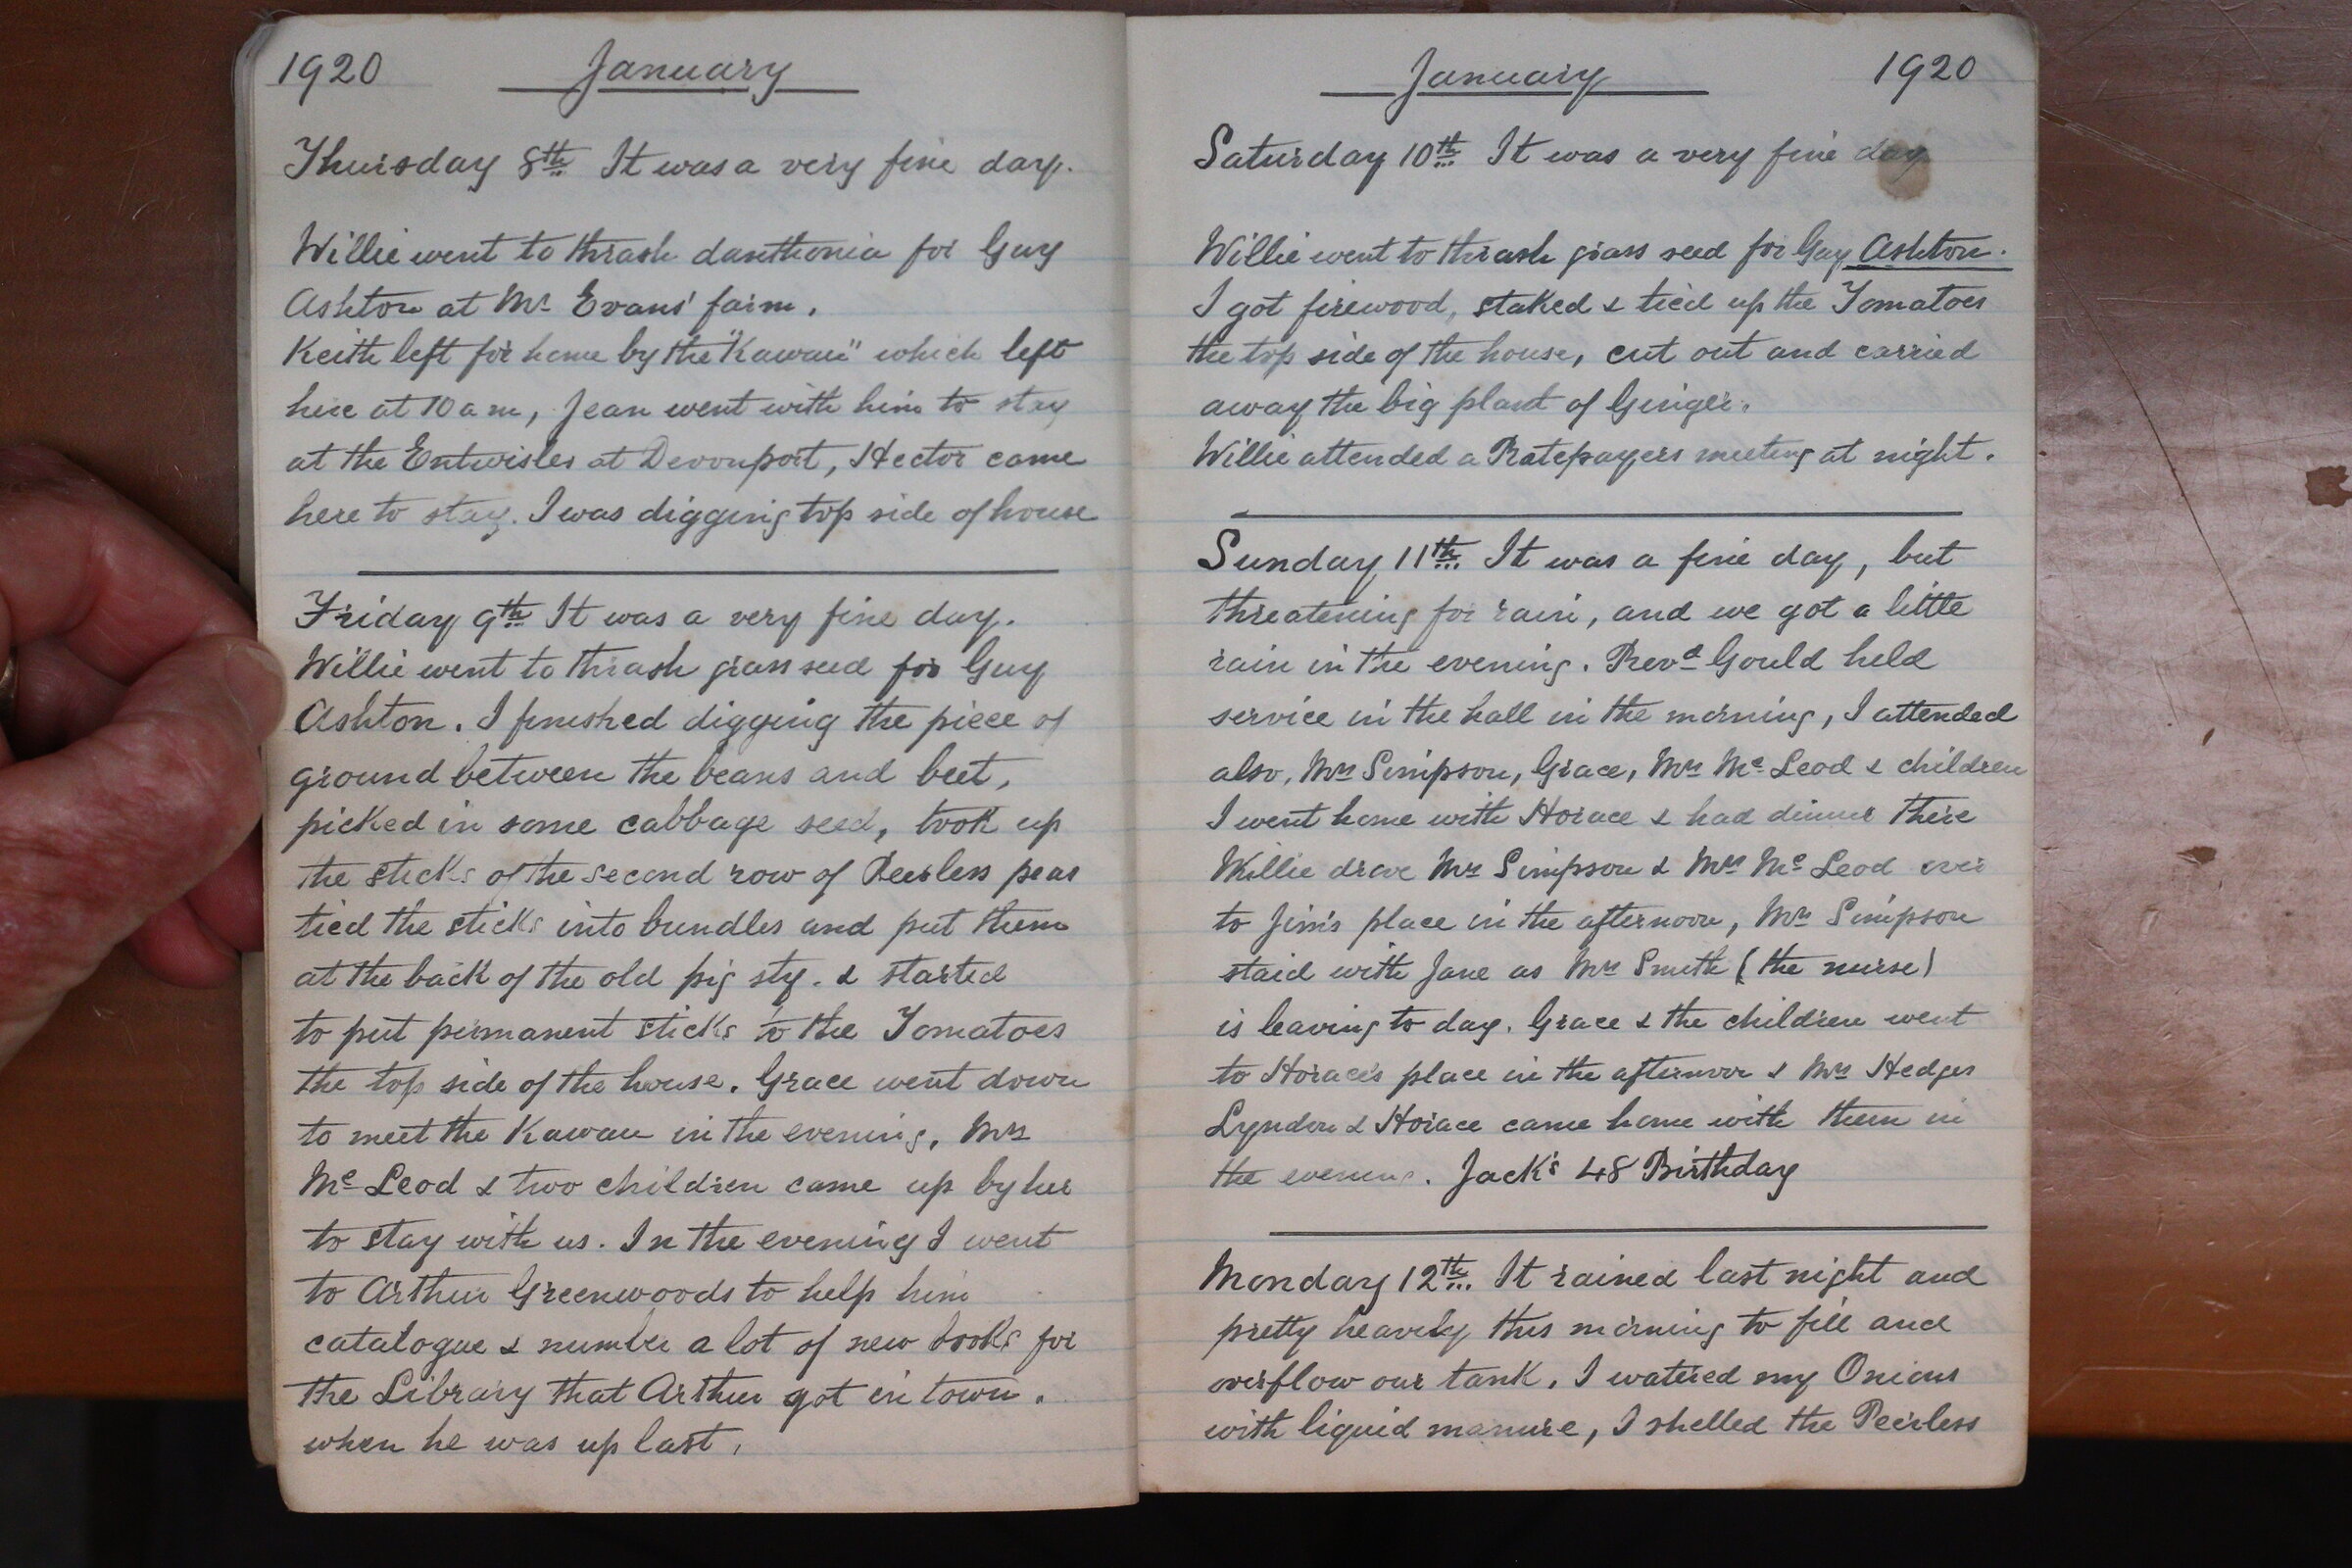 1920 January
Thursday 8th It was a very fine day.
Willie went to thrash danthonia for Guy
Ashton at Mr Evans' farm.
Keith left for home by the "Kawau" which left
here at 10 am, Jean went with him to stay
at the Entwisles at Devonport, Hector came
here to stay. I was digging top side of house
Friday 9th It was a very fine day.
Willie went to thrash grass seed for Guy
Ashton. I finished digging the piece of
ground between the beans and beet,
picked in some cabbage seed, took up
the sticks of the second row of Peerless peas
tied the sticks into bundles and put them
at the back of the old pig sty. & started
to put permanent sticks to the Tomatoes
the top side of the house. Grace went down
to meet the Kawau in the evening, Mrs
Mc Leod & two children came up by her
to stay with us. In the evening I went
to Arthur Greenwoods to help him
catalogue & number a lot of new books for
the Library that Arthur got in town.
when he was up last.
January 1920
Saturday 10th It was a very fine day
Willie went to thrash grass seed for Guy Ashton.
I got firewood, staked & tied up the Tomatoes
the top side of the house, cut out and carried
away the big plant of Ginger.
Willie attended a Ratepayers meeting at night.
Sunday 11th It was a fine day, but
threatening for rain, and we got a little
rain in the evening. Revd Gould held
service in the hall in the morning, I attended
also, Mrs Simpson, Grace, Mrs Mc Leod & children
I went home with Horace & had dinner there
Willie drove Mrs Simpson & Mrs Mc Leod over
to Jim's place in the afternoon, Mrs Simpson
staid with Jane as Mrs Smith (the nurse)
is leaving to day. Grace & the children went
to Horace's place in the afternoon & Mrs Hedges
Lyndon & Horace came home with them in
the evening. Jack's 48 Birthday
Monday 12th It rained last night and
pretty heavily this morning to fill and
overflow our tank. I watered my Onions
with liquid manure, I shelled the Peerless